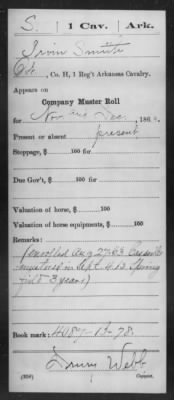 S. | 1 Cav. | Ark.
Irvin Smith
Co. H, 1 Reg't Arkansas Cavalry.
Appears on
Company Muster Roll
for Nov. and Dec., 186
Present or absent present
Stoppage, $ 100 for
Due Gov't, $ 100 for
Valuation of horse, $ 100
Valuation of horse equipments, $ 100
Remarks:
(enrolled Aug 27. 63
mustered in Sept. Spring
field 3 years)
Book mark: 4087-B-78.
Webb
(358) Copyist.